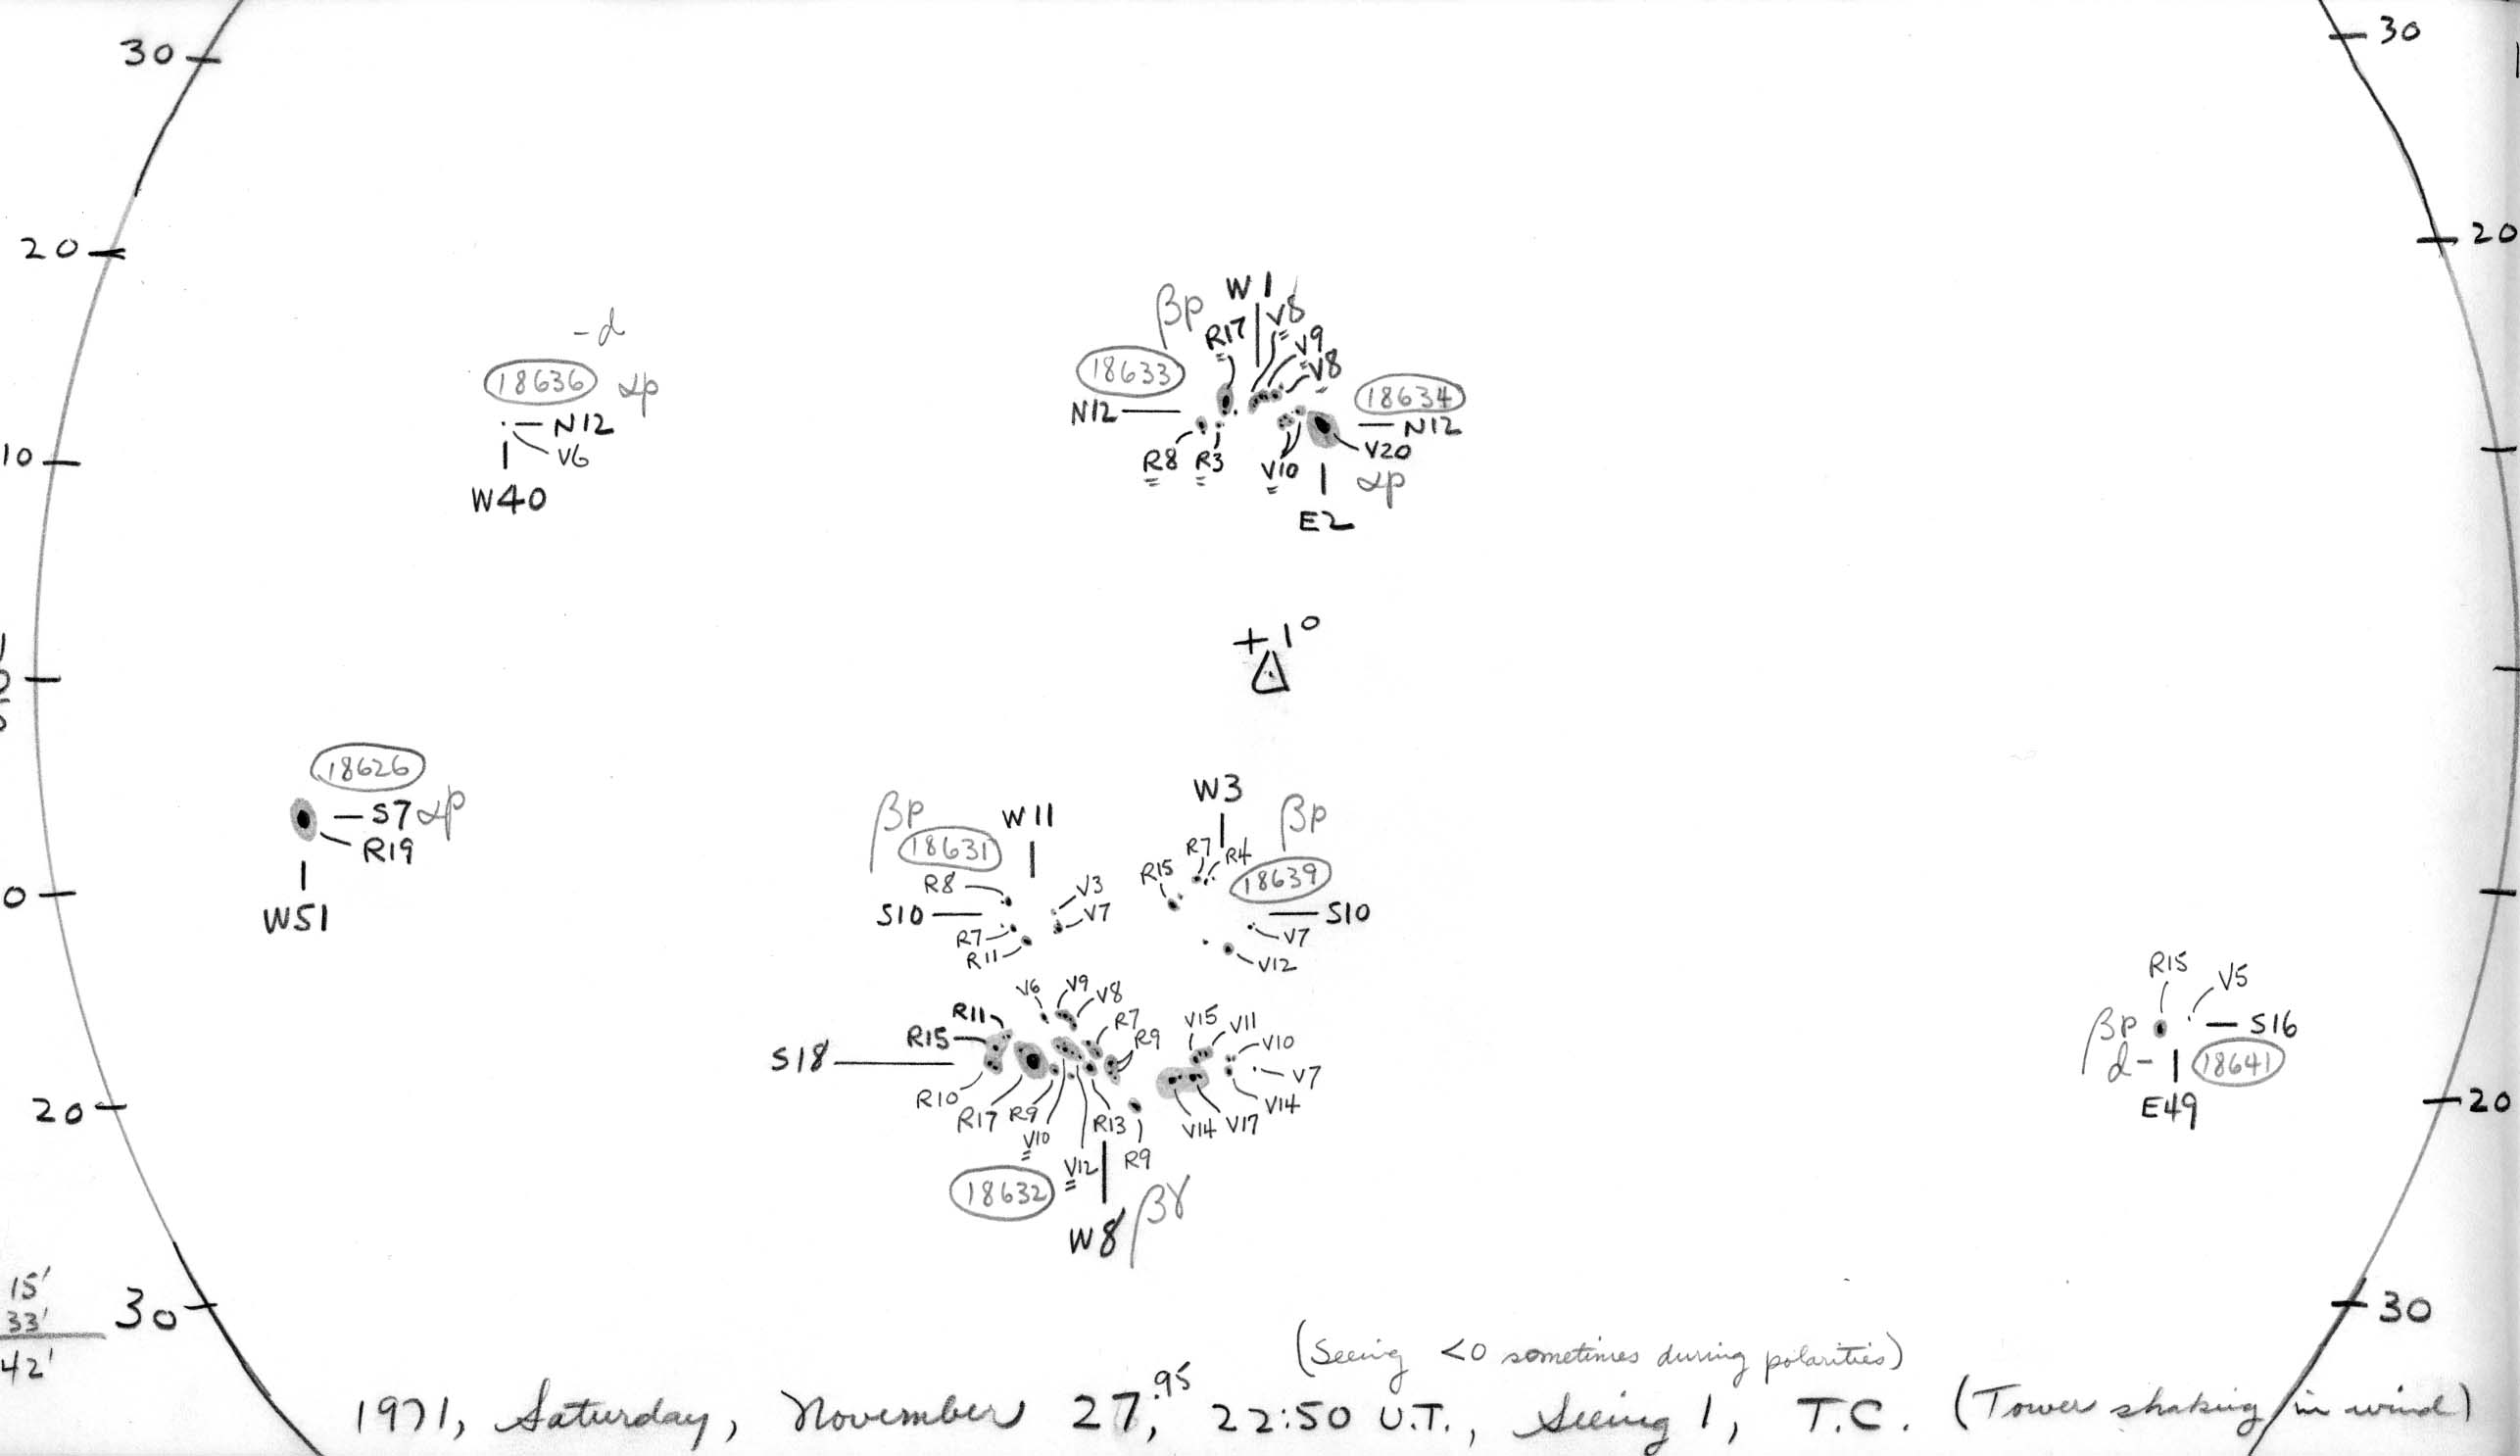 30
30
20
20
10
-d
18636 αp
N12
V6
W40
W1
βp
R17
V8
V9
V8
18633
N12
18634
N12
V20
R8
R3
V10
αp
E2
+1°
18626
S7 αp
R19
W51
0
W11
βp
18631
R8
V3
S10
V7
R7
R11
W3
βp
R7
R4
R15
18639
S10
V7
V12
V6
V9
V8
R11
R15
R7
R9
V15
V11
V10
S18
V7
R10
R17
R9
V10
V12
R13
R9
V14
V17
V14
18632
W8
βγ
R15
V5
βp
S16
d-
18641
E49
20
20
15'
33'
42'
30
30
(Seeing <0 sometimes during polarities)
1971, Saturday, November 27,.95 22:50 U.T., Seeing 1, T.C. (Tower shaking in wind)